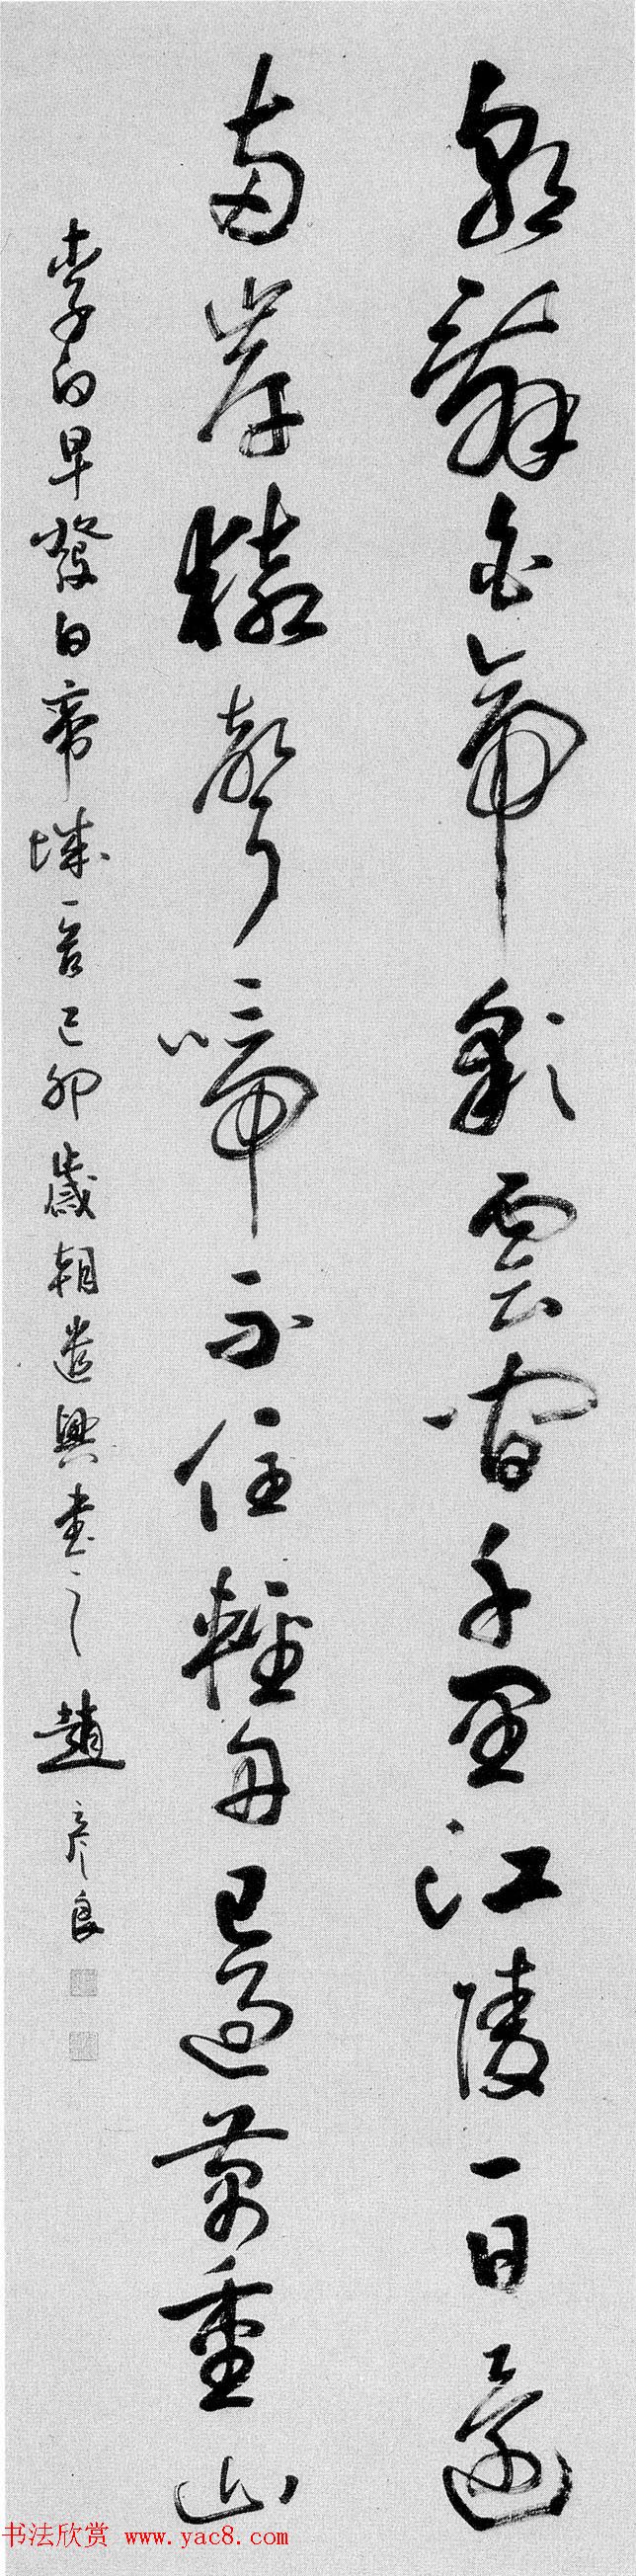 朝辭白帝彩雲間千里江陵一日還
兩岸猿聲啼不住輕舟已過萬重山
李白早發白帝城一首己卯歲朝遣興書之趙彥良
书法欣赏 www.yac8.com